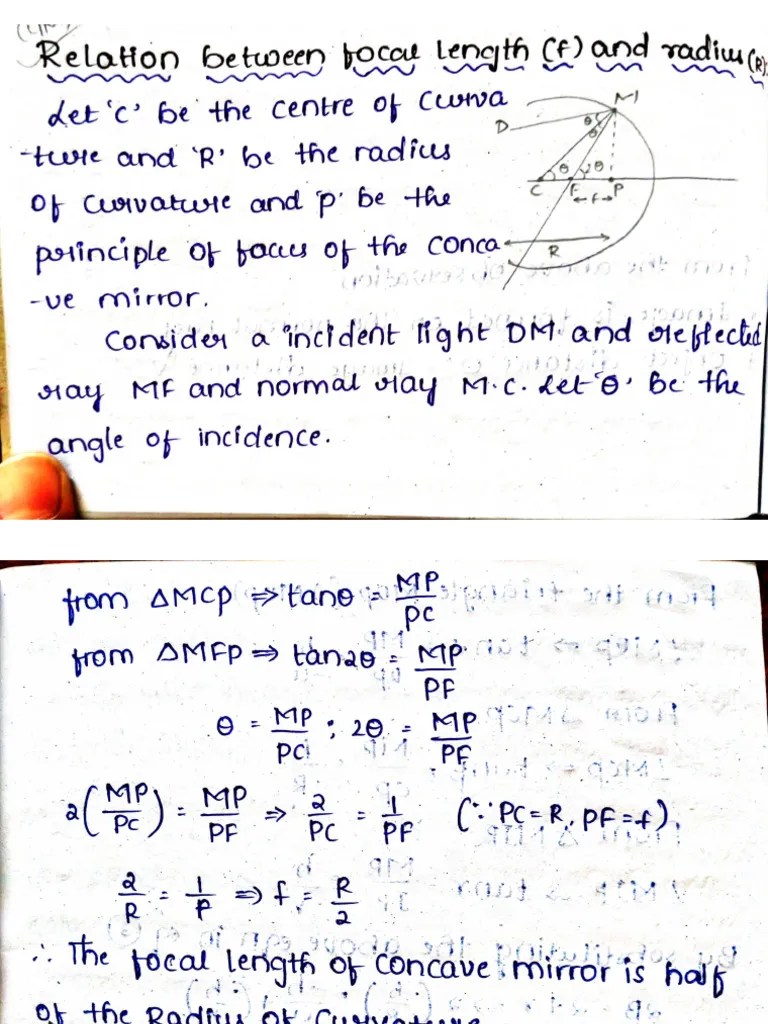 Relation between focal length (f) and radius (R)
Let 'C' be the centre of curva
-ture and 'R' be the radius
of curvature and 'p' be the
principle of focus of the conca
-ve mirror.
Consider a incident light DM and reflected
ray MF and normal ray M.C. Let 'θ' be the
angle of incidence.
M
D
θ
θ
θ
2θ
C
F
P
f
R
from ΔMCP ⇒ tanθ = MP/PC
from ΔMFP ⇒ tan2θ = MP/PF
θ = MP/PC ; 2θ = MP/PF
2(MP/PC) = MP/PF ⇒ 2/PC = 1/PF (∵ PC = R, PF = f).
2/R = 1/f ⇒ f = R/2
∴ The focal length of concave mirror is half
of the Radius of Curvature